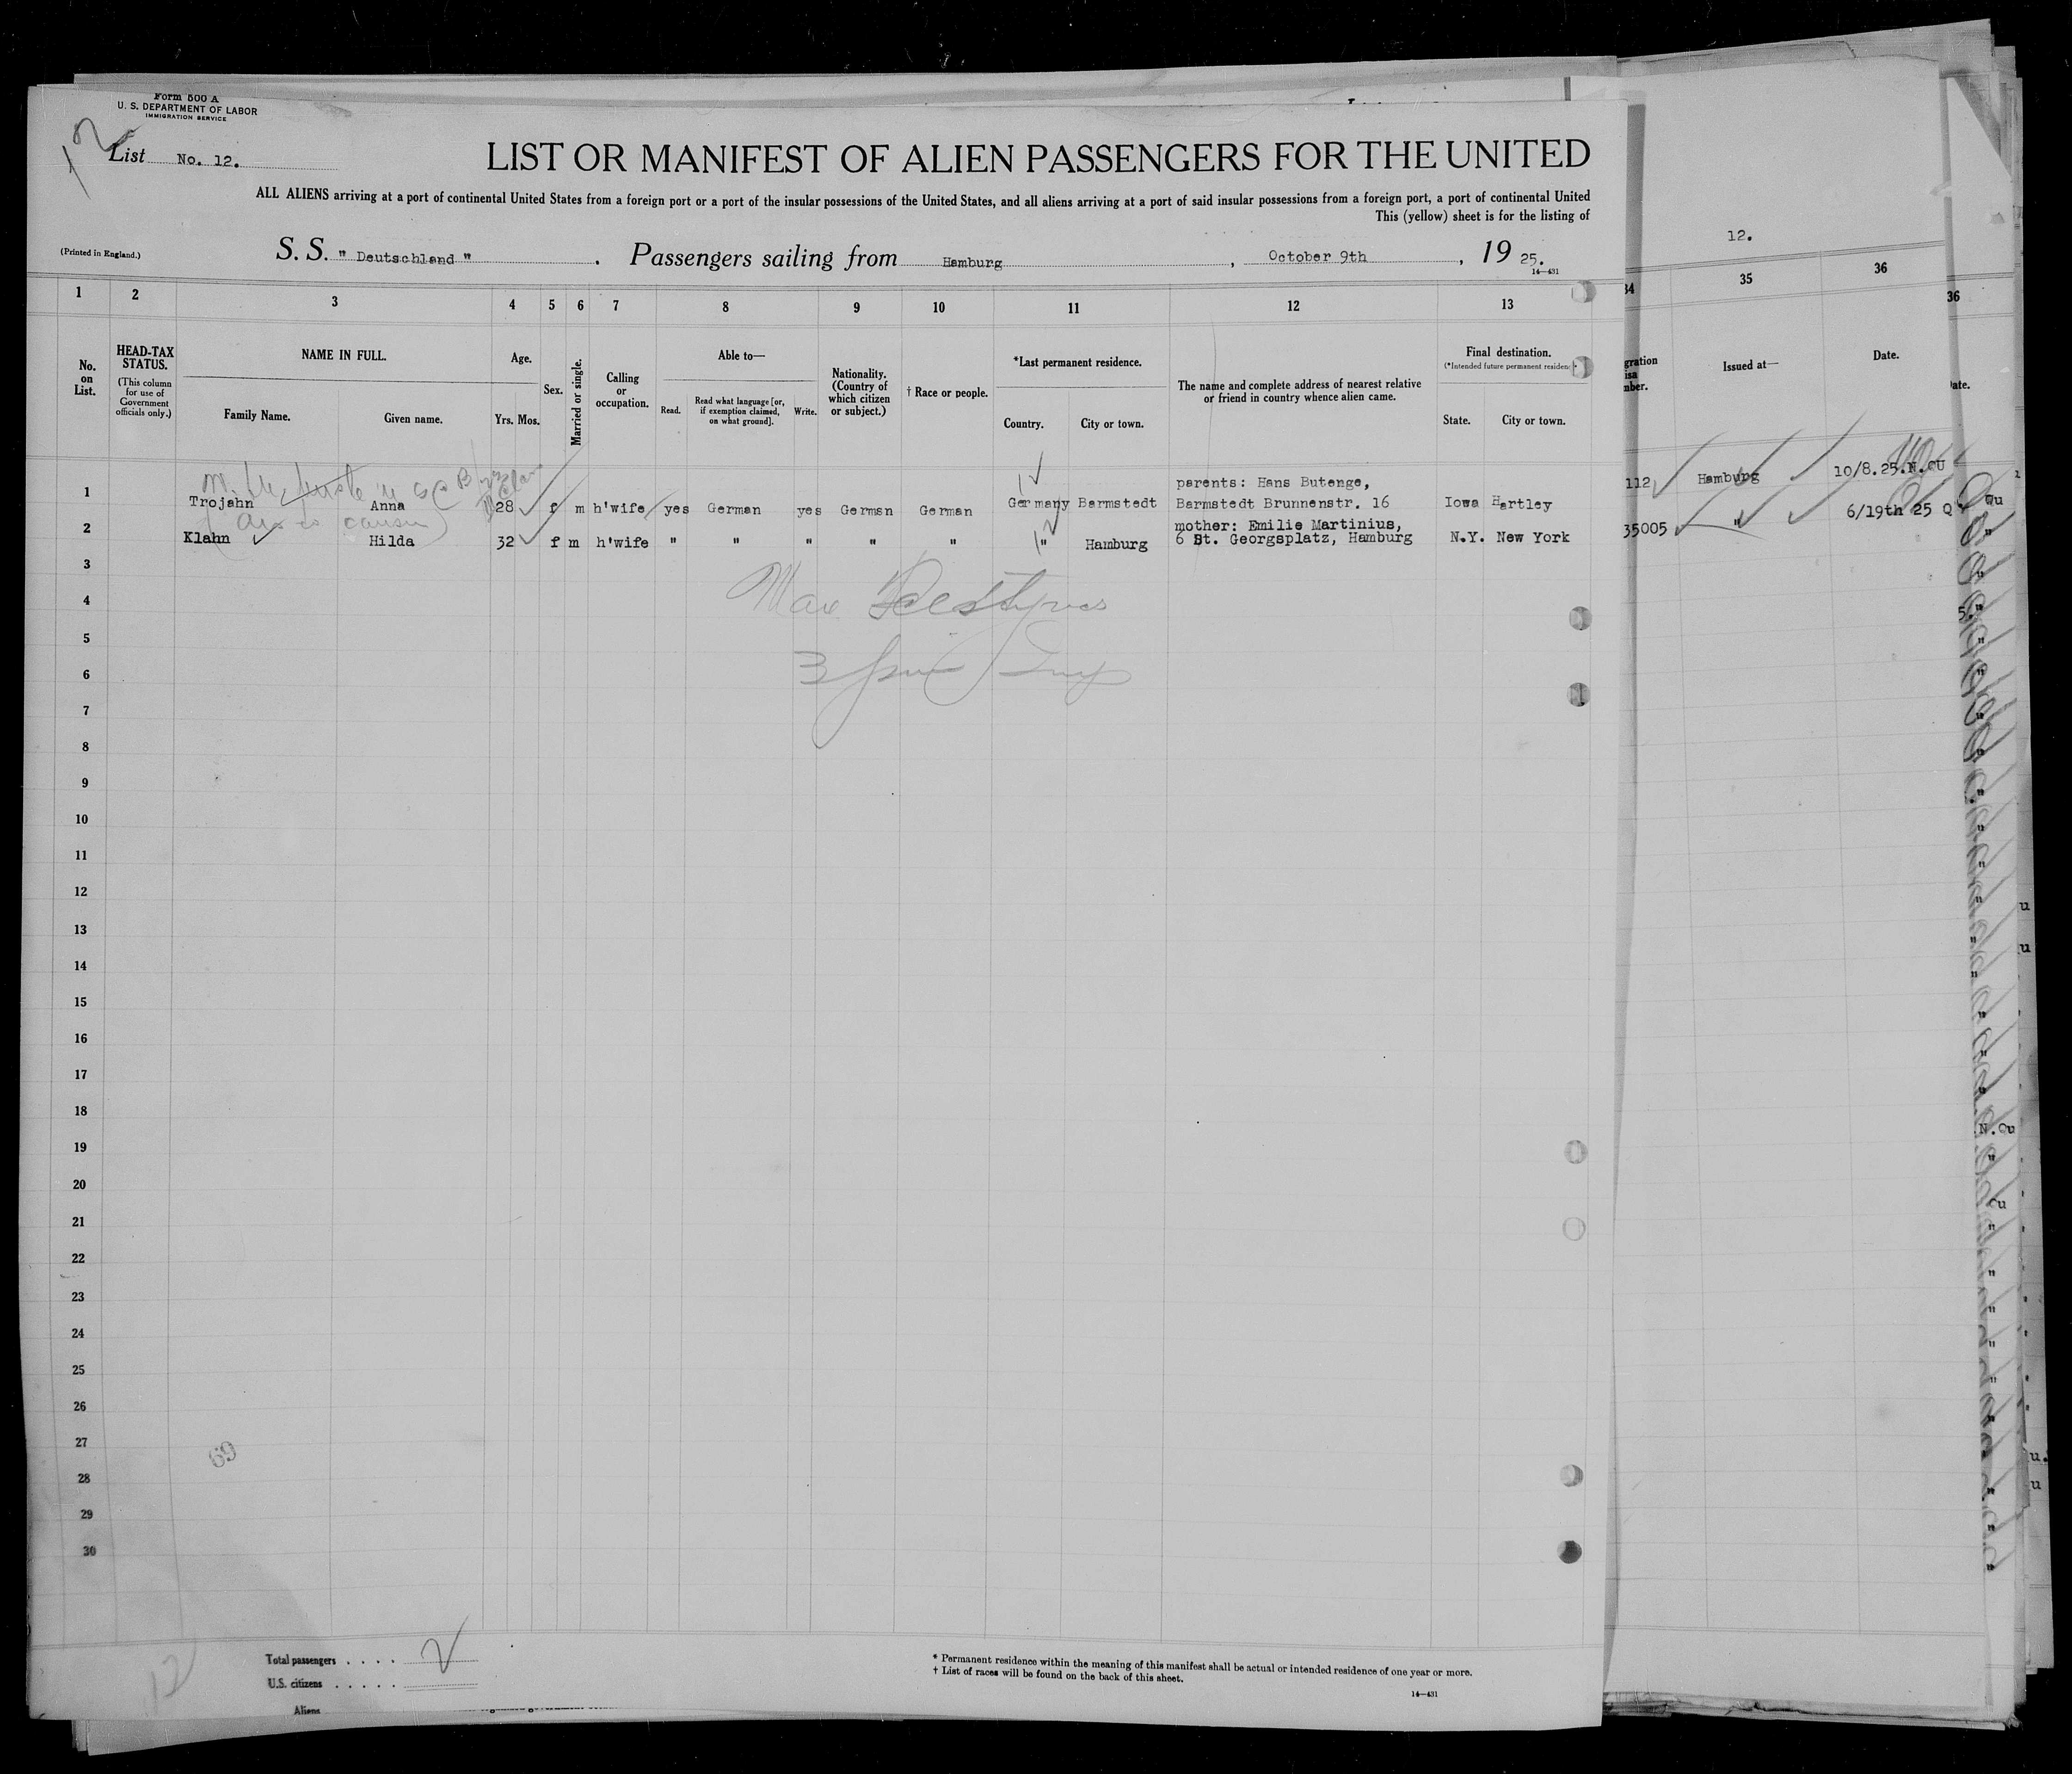 Form 500 A
U. S. DEPARTMENT OF LABOR
IMMIGRATION SERVICE
12
List No. 12.
LIST OR MANIFEST OF ALIEN PASSENGERS FOR THE UNITED
ALL ALIENS arriving at a port of continental United States from a foreign port or a port of the insular possessions of the United States, and all aliens arriving at a port of said insular possessions from a foreign port, a port of continental United
This (yellow) sheet is for the listing of
(Printed in England.)
S. S. " Deutschland " . Passengers sailing from Hamburg , October 9th , 19 25.
14—431
12.
1 2 3 4 5 6 7 8 9 10 11 12 13 34 35 36
36
No. on List.
HEAD-TAX STATUS.
(This column for use of Government officials only.)
NAME IN FULL.
Family Name. Given name.
Age.
Yrs. Mos.
Sex.
Married or single.
Calling or occupation.
Able to—
Read. Read what language [or, if exemption claimed, on what ground]. Write.
Nationality. (Country of which citizen or subject.)
† Race or people.
*Last permanent residence.
Country. City or town.
The name and complete address of nearest relative or friend in country whence alien came.
Final destination.
(*Intended future permanent residence
State. City or town.
gration
isa
mber.
Issued at—
Date.
ate.
parents: Hans Butenge,
1 Trojahn Anna 28 f m h'wife yes German yes German German Germany Barmstedt Barmstedt Brunnenstr. 16 Iowa Hartley 112 Hamburg 10/8.25.N.QU
mother: Emilie Martinius,
2 Klahn Hilda 32 f m h'wife " " " " " " Hamburg 6 St. Georgsplatz, Hamburg N.Y. New York 35005 " 6/19th 25 Q
3
4 Max
5
6 3
7
8
9
10
11
12
13
14
15
16
17
18
19
20
21
22
23
24
25
26
27
69
28
29
30
12
Total passengers . . . . 2
U.S. citizens . . . . .
Aliens
* Permanent residence within the meaning of this manifest shall be actual or intended residence of one year or more.
† List of races will be found on the back of this sheet.
14—431
N.Qu